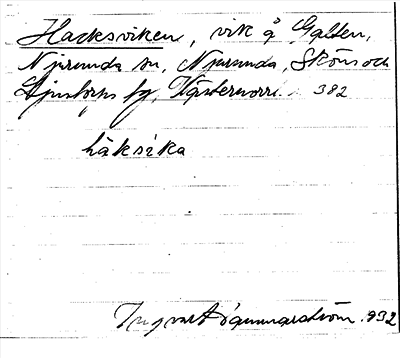 Hacksviken, vik å Galten,
Njurunda sn, Njurunda, Sköns och
Ljustorps tg, Västernorrl. 382
häksika
Ingvar 932